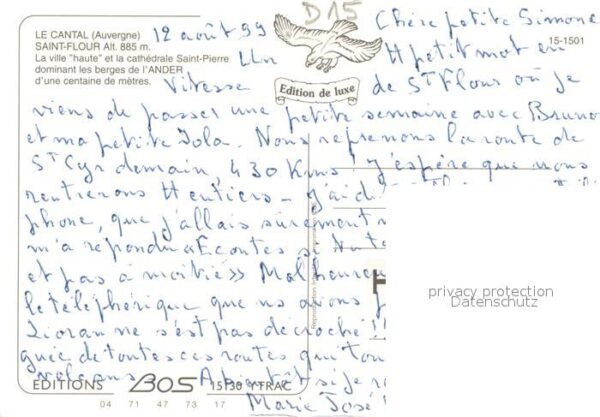 D15
LE CANTAL (Auvergne)
SAINT-FLOUR Alt. 885 m.
La ville "haute" et la cathédrale Saint-Pierre
dominant les berges de l'ANDER
d'une centaine de mètres.
Edition de luxe
15-1501
12 août 99
Chère petite Simone
Un petit mot en
Vitesse de St Flour où je
viens de passer une petite semaine avec Bruno
et ma petite Lola. Nous reprenons la route de
St Cyr demain, 430 Kms! J'espère que nous
rentrerons entiers - J'ai di
phone, que j'allais sûrement
m'a répondu «Ecoutes si
et pas à moitié» Malheureu
le téléphérique que ns avions
Lioran ne s'est pas décroché!!
guée de toutes ces routes qui tou
volcans. A bientôt si je
Marie José
EDITIONS BOS 15130 YTRAC
04 71 47 73 17
privacy protection
Datenschutz